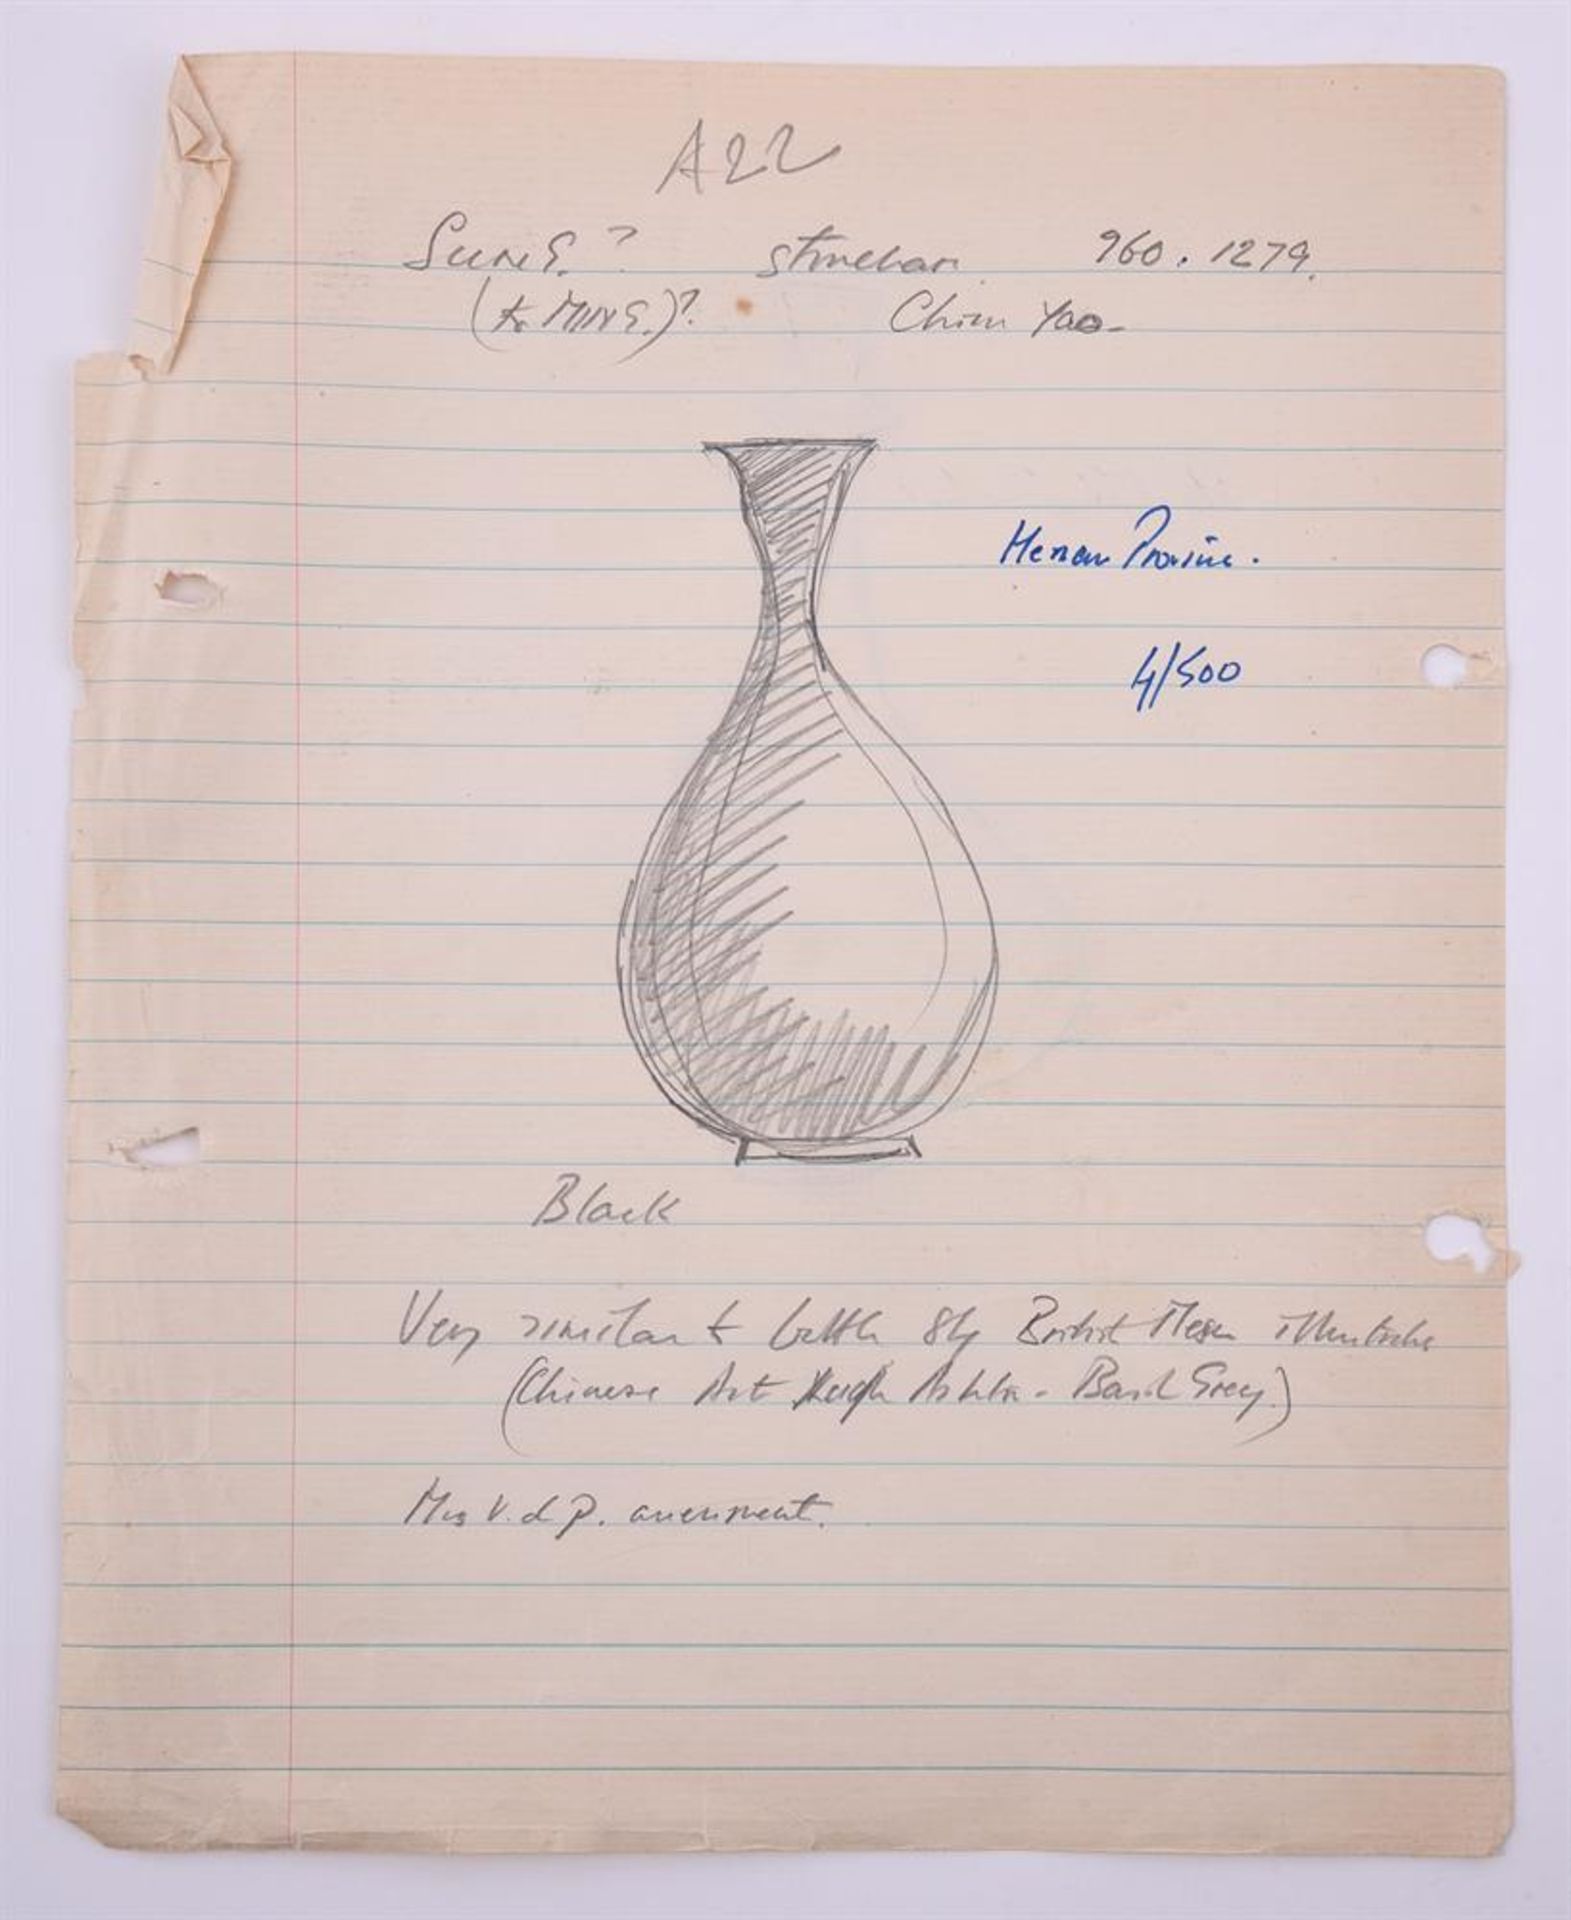 A22
SUNG.? stoneware 960. 1279.
(to MING.)? Chien Yao-
Henan Province.
4/500
Black
Very similar to bottle 84 British Museum
(Chinese Art Leigh Ashton - Basil Grey.)
Mrs V. d P.